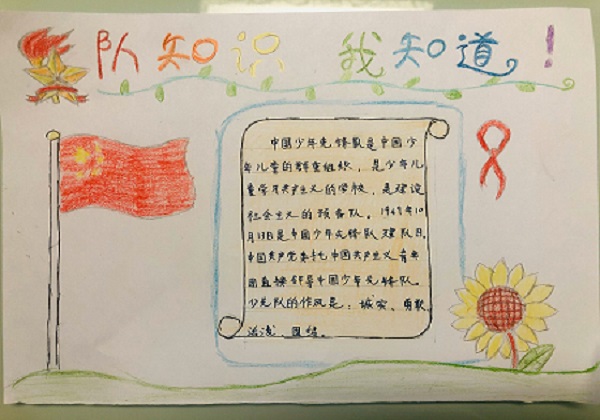 队知识 我知道!
中国少年先锋队是中国少
年儿童的群众组织,是少年儿
童学习共产主义的学校,是建设
社会主义的预备队。1949年10
月13日是中国少年先锋队建队日。
中国共产党委托中国共产主义青年
团直接领导中国少年先锋队。
少先队的作风是:诚实、勇敢、
活泼、团结。